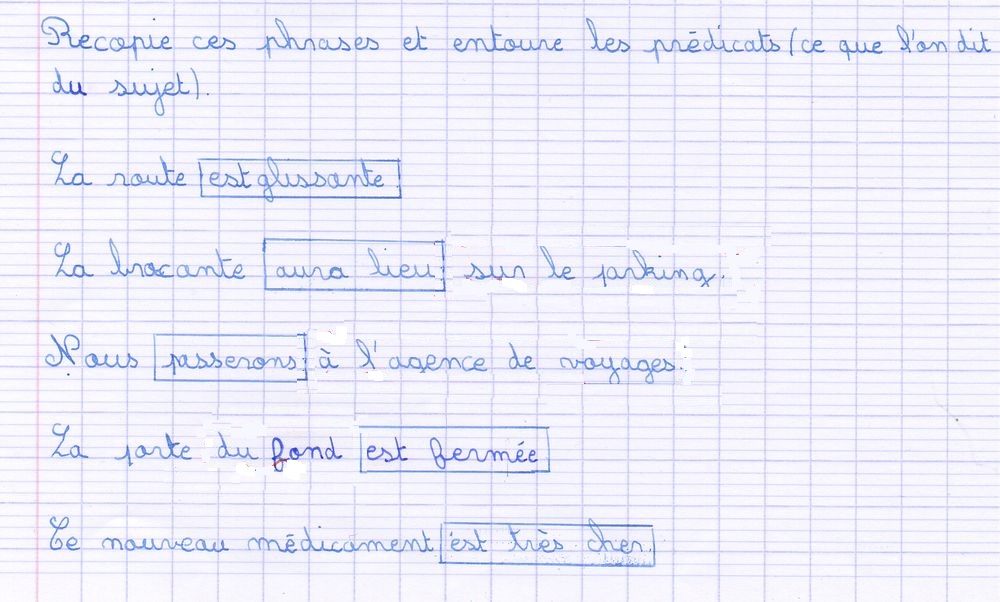 Recopie ces phrases et entoure les prédicats (ce que l'on dit
du sujet).
La route est glissante
La brocante aura lieu sur le parking.
Nous passerons à l'agence de voyages.
La porte du fond est fermée
Ce nouveau médicament est très cher.